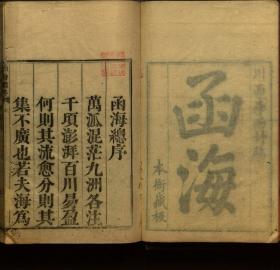 函海
本衙藏板
函海總序
萬派混茫九洲各注
千頃澎湃百川易盈
何則其流愈分則其
集不廣也若夫海爲